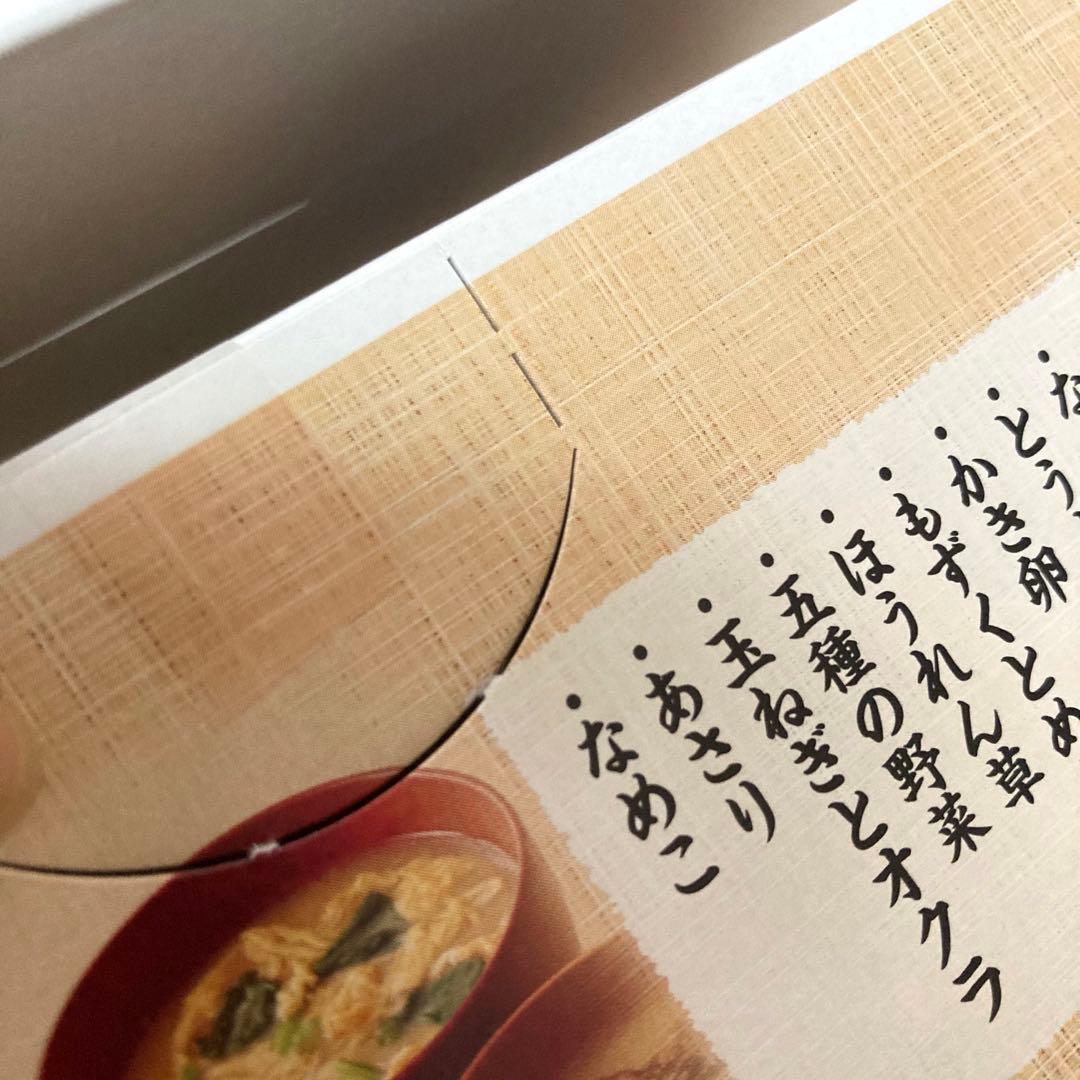 ・な
・とう
・かき卵
・もずくとめ
・ほうれん草
・五種の野菜
・玉ねぎとオクラ
・あさり
・なめこ